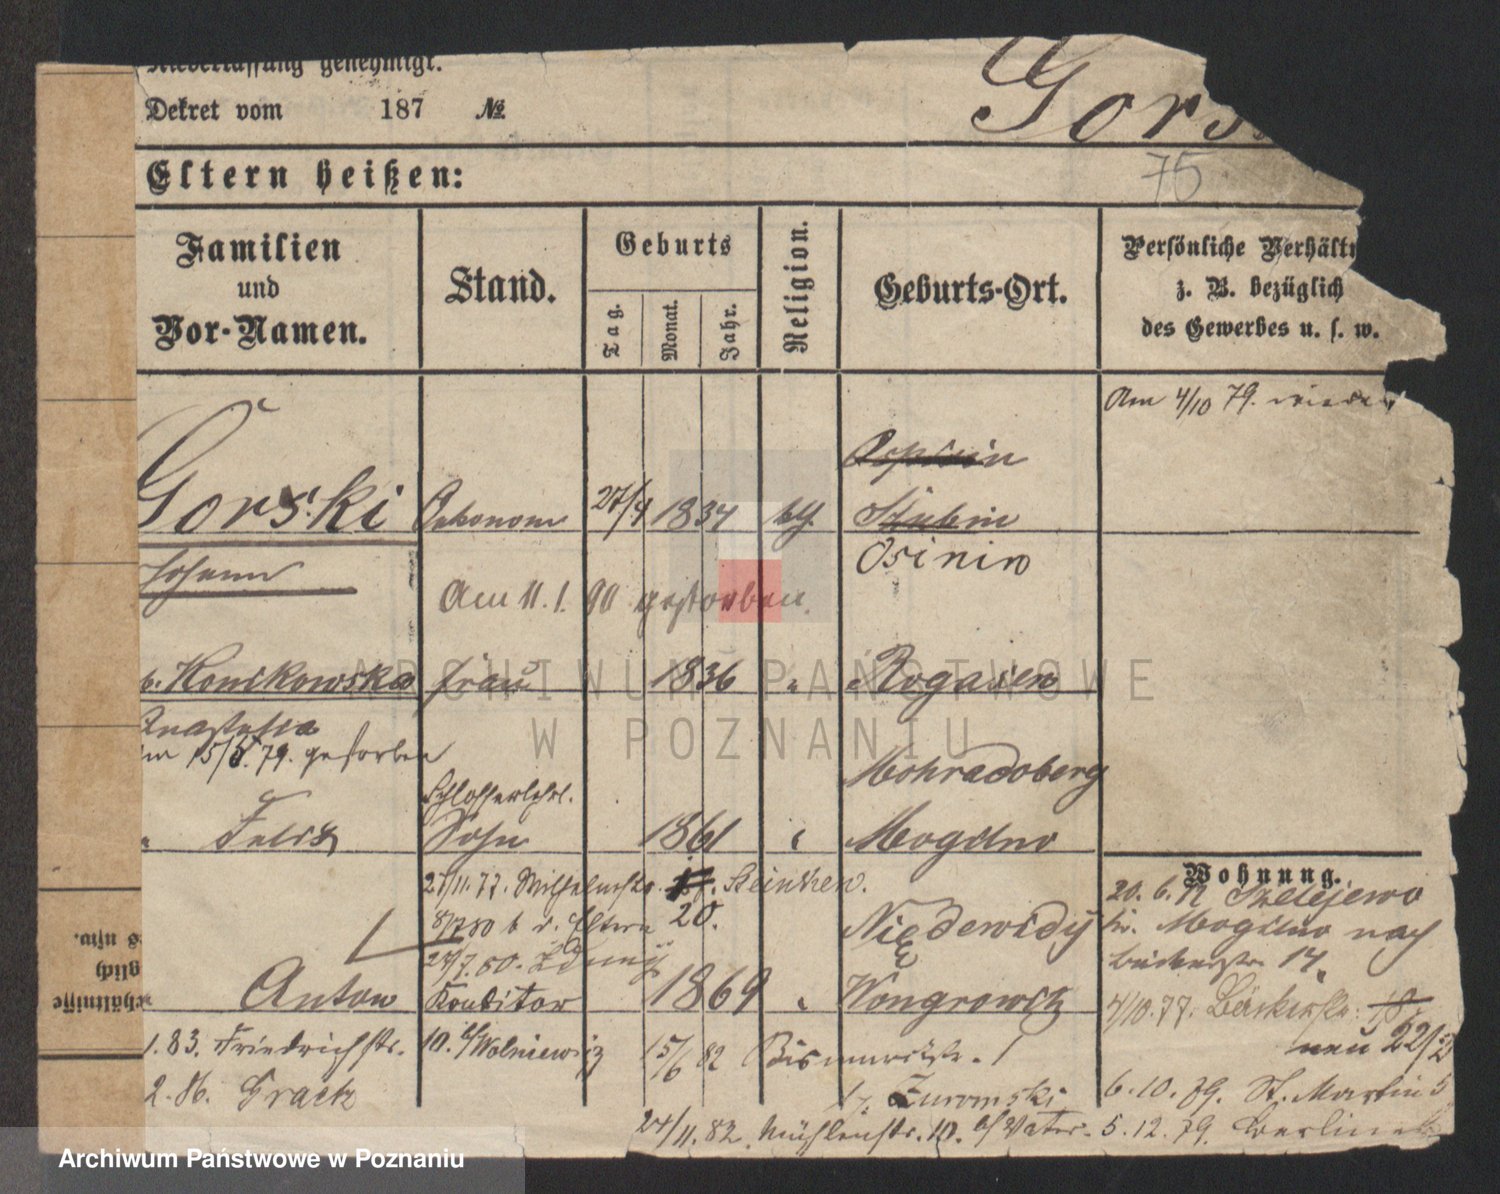 Niederlassung genehmigt.
Dekret vom 187 № Gors
75
Eltern heißen:
Familien und Vor-Namen.
Stand.
Geburts
Tag.
Monat.
Jahr.
Religion.
Geburts-Ort.
Persönliche Verhältn
z. B. bezüglich
des Gewerbes u. s. w.
Am 4/10 79. wieder
Gorski Oekonom 27/4 1834 kth Stubin
Osinin
Johann
Am 11. 1. 90 gestorben.
b. Konikowska Frau 1836 " Rogasen
Anastasia
m 15/8. 79. gestorben
Mohradoberg
Schlosserlehrl.
" Felix Sohn 1861 " Mogilno
Wohnung.
27/11. 77. Wilhelmstr. 17. Steinken.
20.
20. 6. Szelejewo
kr. Mogilno nach
8/7 80 b. d. Eltern
Niedewidy
Bäckerstr. 14.
28/7. 80. Zduny
Anton Konditor 1869 " Wongrowitz
4/10. 77. Bäckerstr. 18.
neu 22/23
1. 83. Friedrichstr. 10. b/ Wolniewicz 15/6 82 Bismarckstr. 1
2. 86. Graetz
b. Zuromski
6. 10. 79. St. Martin 5
24/11. 82. Mühlenstr. 10. b/ Vater. 5. 12. 79. Berliner
ARCHIWUM PAŃSTWOWE
W POZNANIU
Archiwum Państwowe w Poznaniu